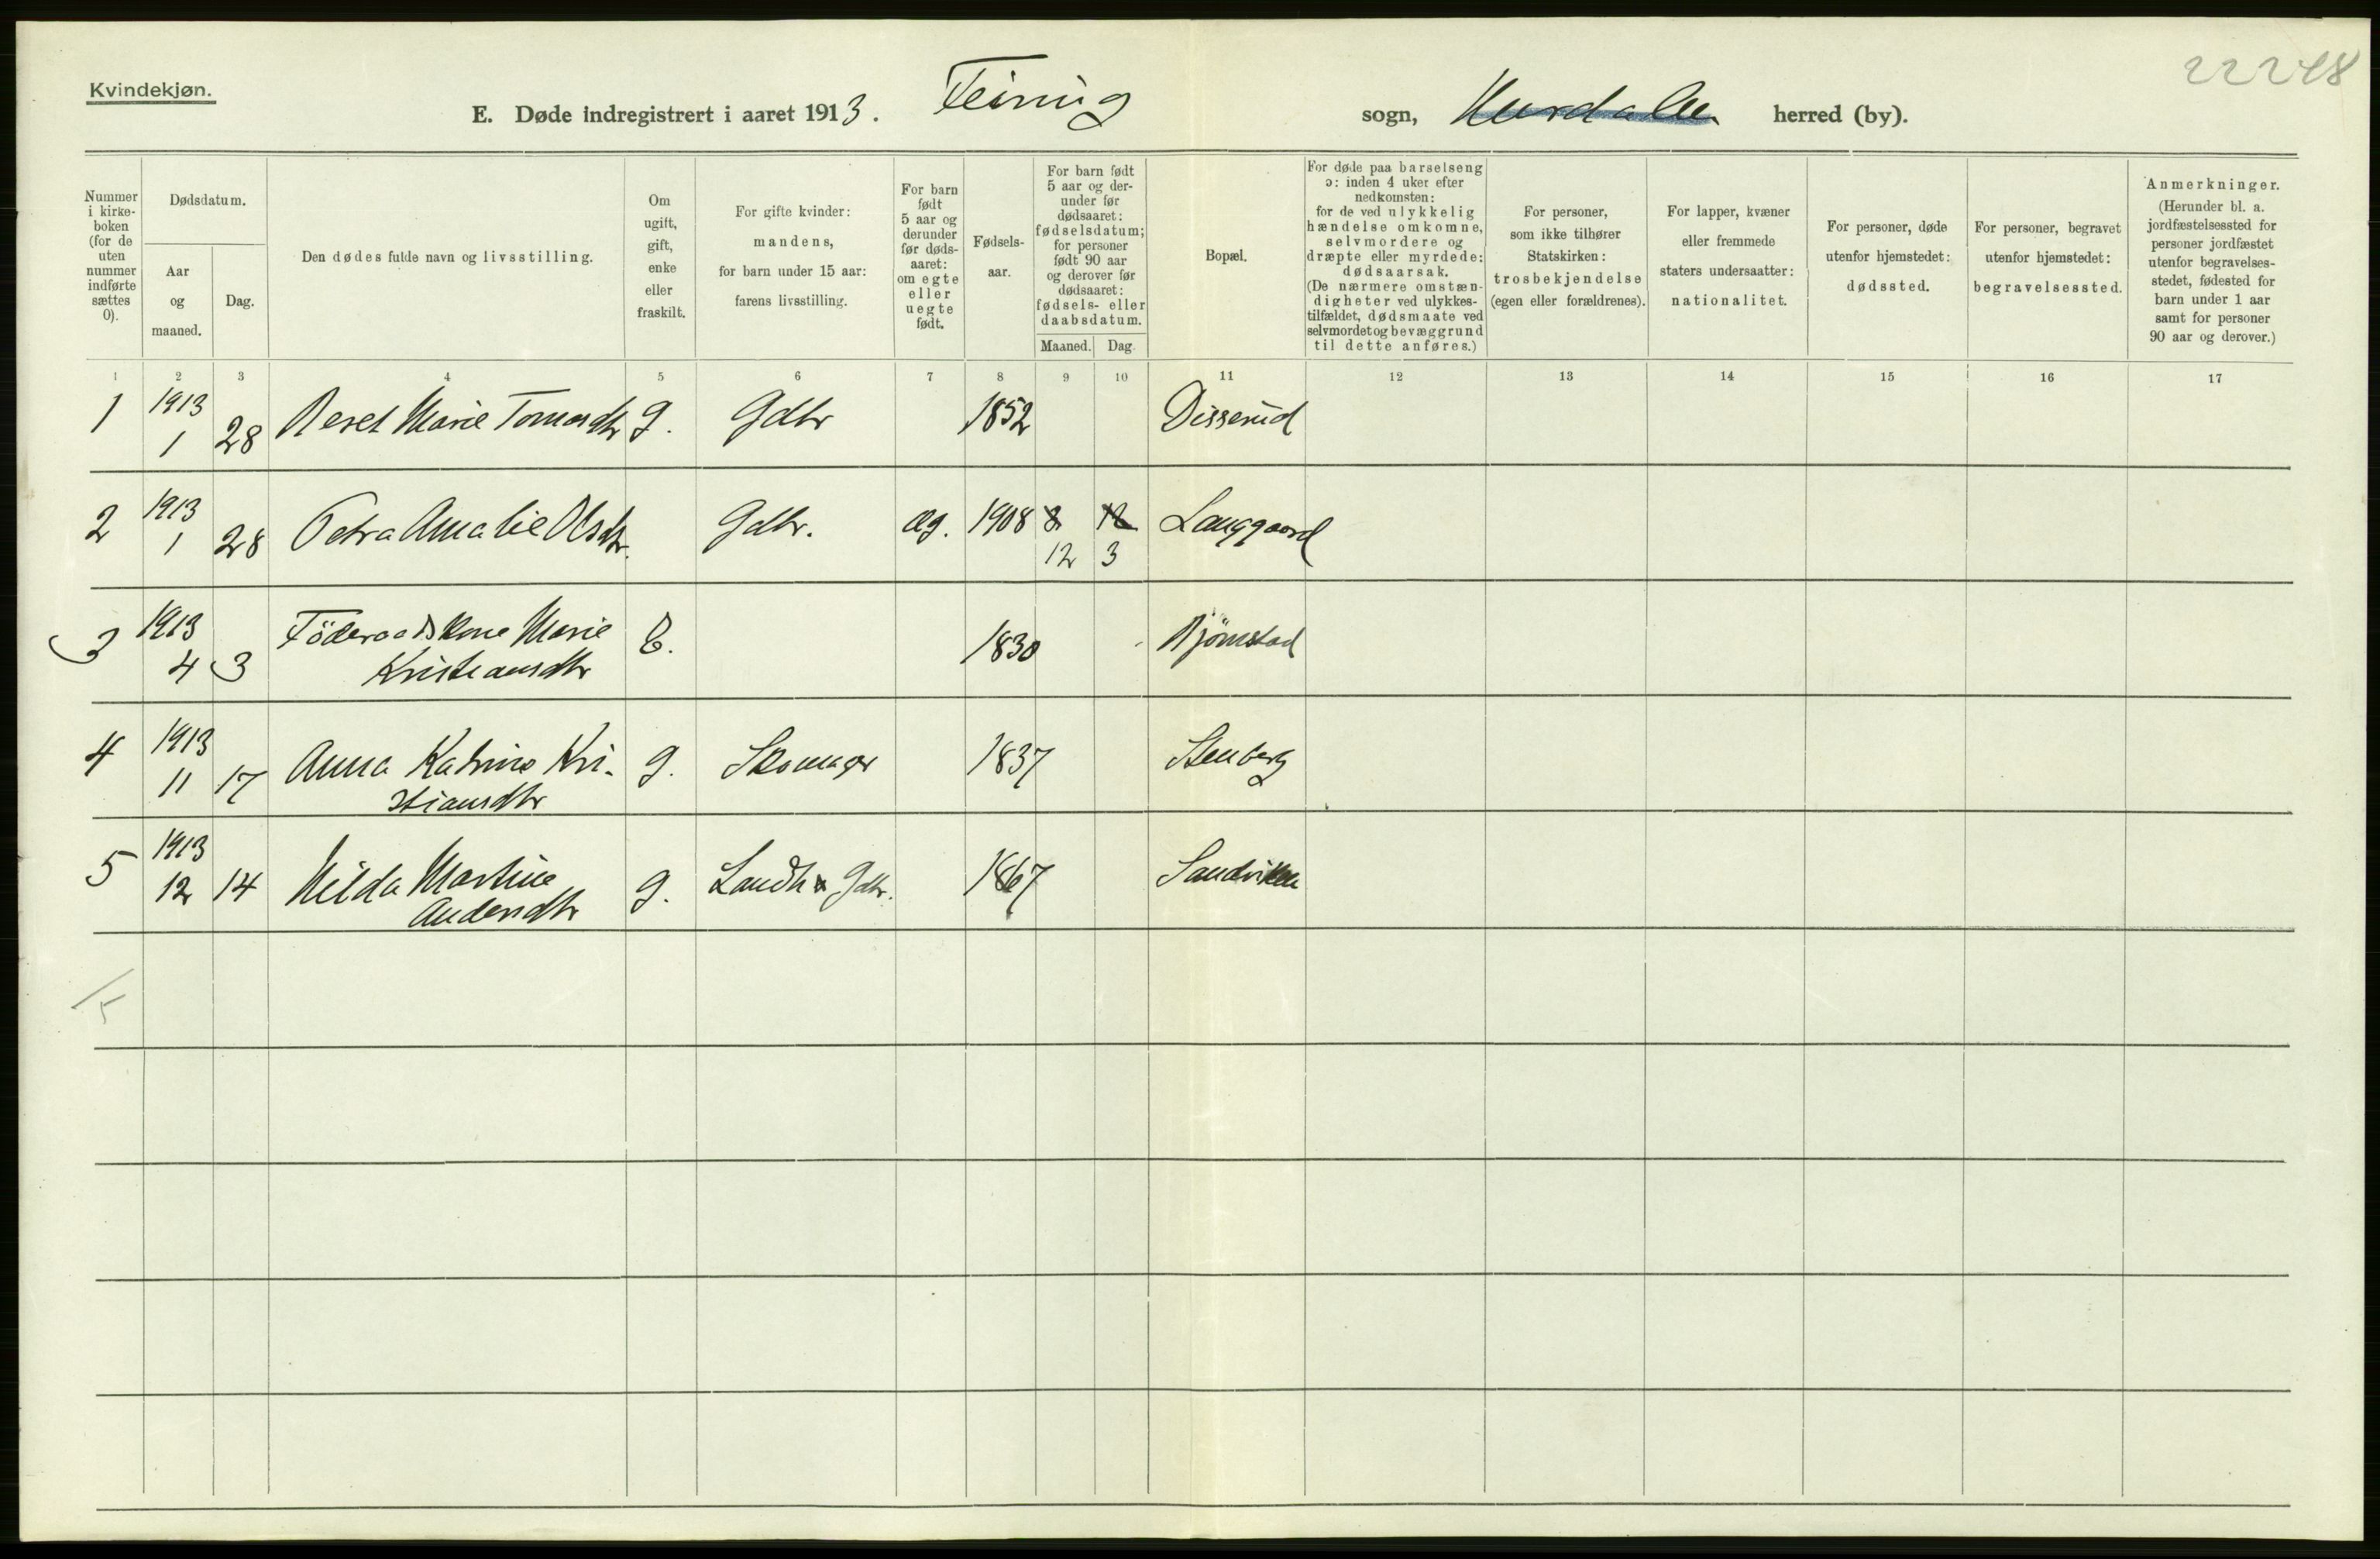 22248
Kvindekjøn.
E. Døde indregistrert i aaret 1913. Feiring sogn, Hurdalen herred (by).
Nummer
i kirke-
boken
(for de
uten
nummer
indførte
sættes
0).
Dødsdatum.
Aar
og
maaned.
Dag.
Den dødes fulde navn og livsstilling.
Om
ugift,
gift,
enke
eller
fraskilt.
For gifte kvinder:
mandens,
for barn under 15 aar:
farens livsstilling.
For barn
født
5 aar og
derunder
før døds-
aaret:
om egte
eller
uegte
født.
Fødsels-
aar.
For barn født
5 aar og der-
under før
dødsaaret:
fødselsdatum;
for personer
født 90 aar
og derover før
dødsaaret:
fødsels- eller
daabsdatum.
Maaned. Dag.
Bopæl.
For døde paa barselseng
ɔ: inden 4 uker efter
nedkomsten:
for de ved ulykkelig
hændelse omkomne,
selvmordere og
dræpte eller myrdede:
dødsaarsak.
(De nærmere omstæn-
digheter ved ulykkes-
tilfældet, dødsmaate ved
selvmordet og bevæggrund
til dette anføres.)
For personer,
som ikke tilhører
Statskirken:
trosbekjendelse
(egen eller forældrenes).
For lapper, kvæner
eller fremmede
staters undersaatter:
nationalitet.
For personer, døde
utenfor hjemstedet:
dødssted.
For personer, begravet
utenfor hjemstedet:
begravelsessted.
Anmerkninger.
(Herunder bl. a.
jordfæstelsessted for
personer jordfæstet
utenfor begravelses-
stedet, fødested for
barn under 1 aar
samt for personer
90 aar og derover.)
1 2 3 4 5 6 7 8 9 10 11 12 13 14 15 16 17
1 1913 Marie g. Gdbr 1852 Disserud
1 28
2 1913 Petra Amalie Olsdtr. Gdbr. æg. 1908 Langgaard
1 28 12 3
3 1913 Föderaadskone Marie E. 1830 Björnstad
4 3 Kristiansdtr
4 1913 Anna Katrine Kri- g. Skomager 1837 Stenberg
11 17 stiansdtr
5 1913 Hilda Martine g. Landh Gdbr. 1867 Sandviken
12 14 Andersdtr
5